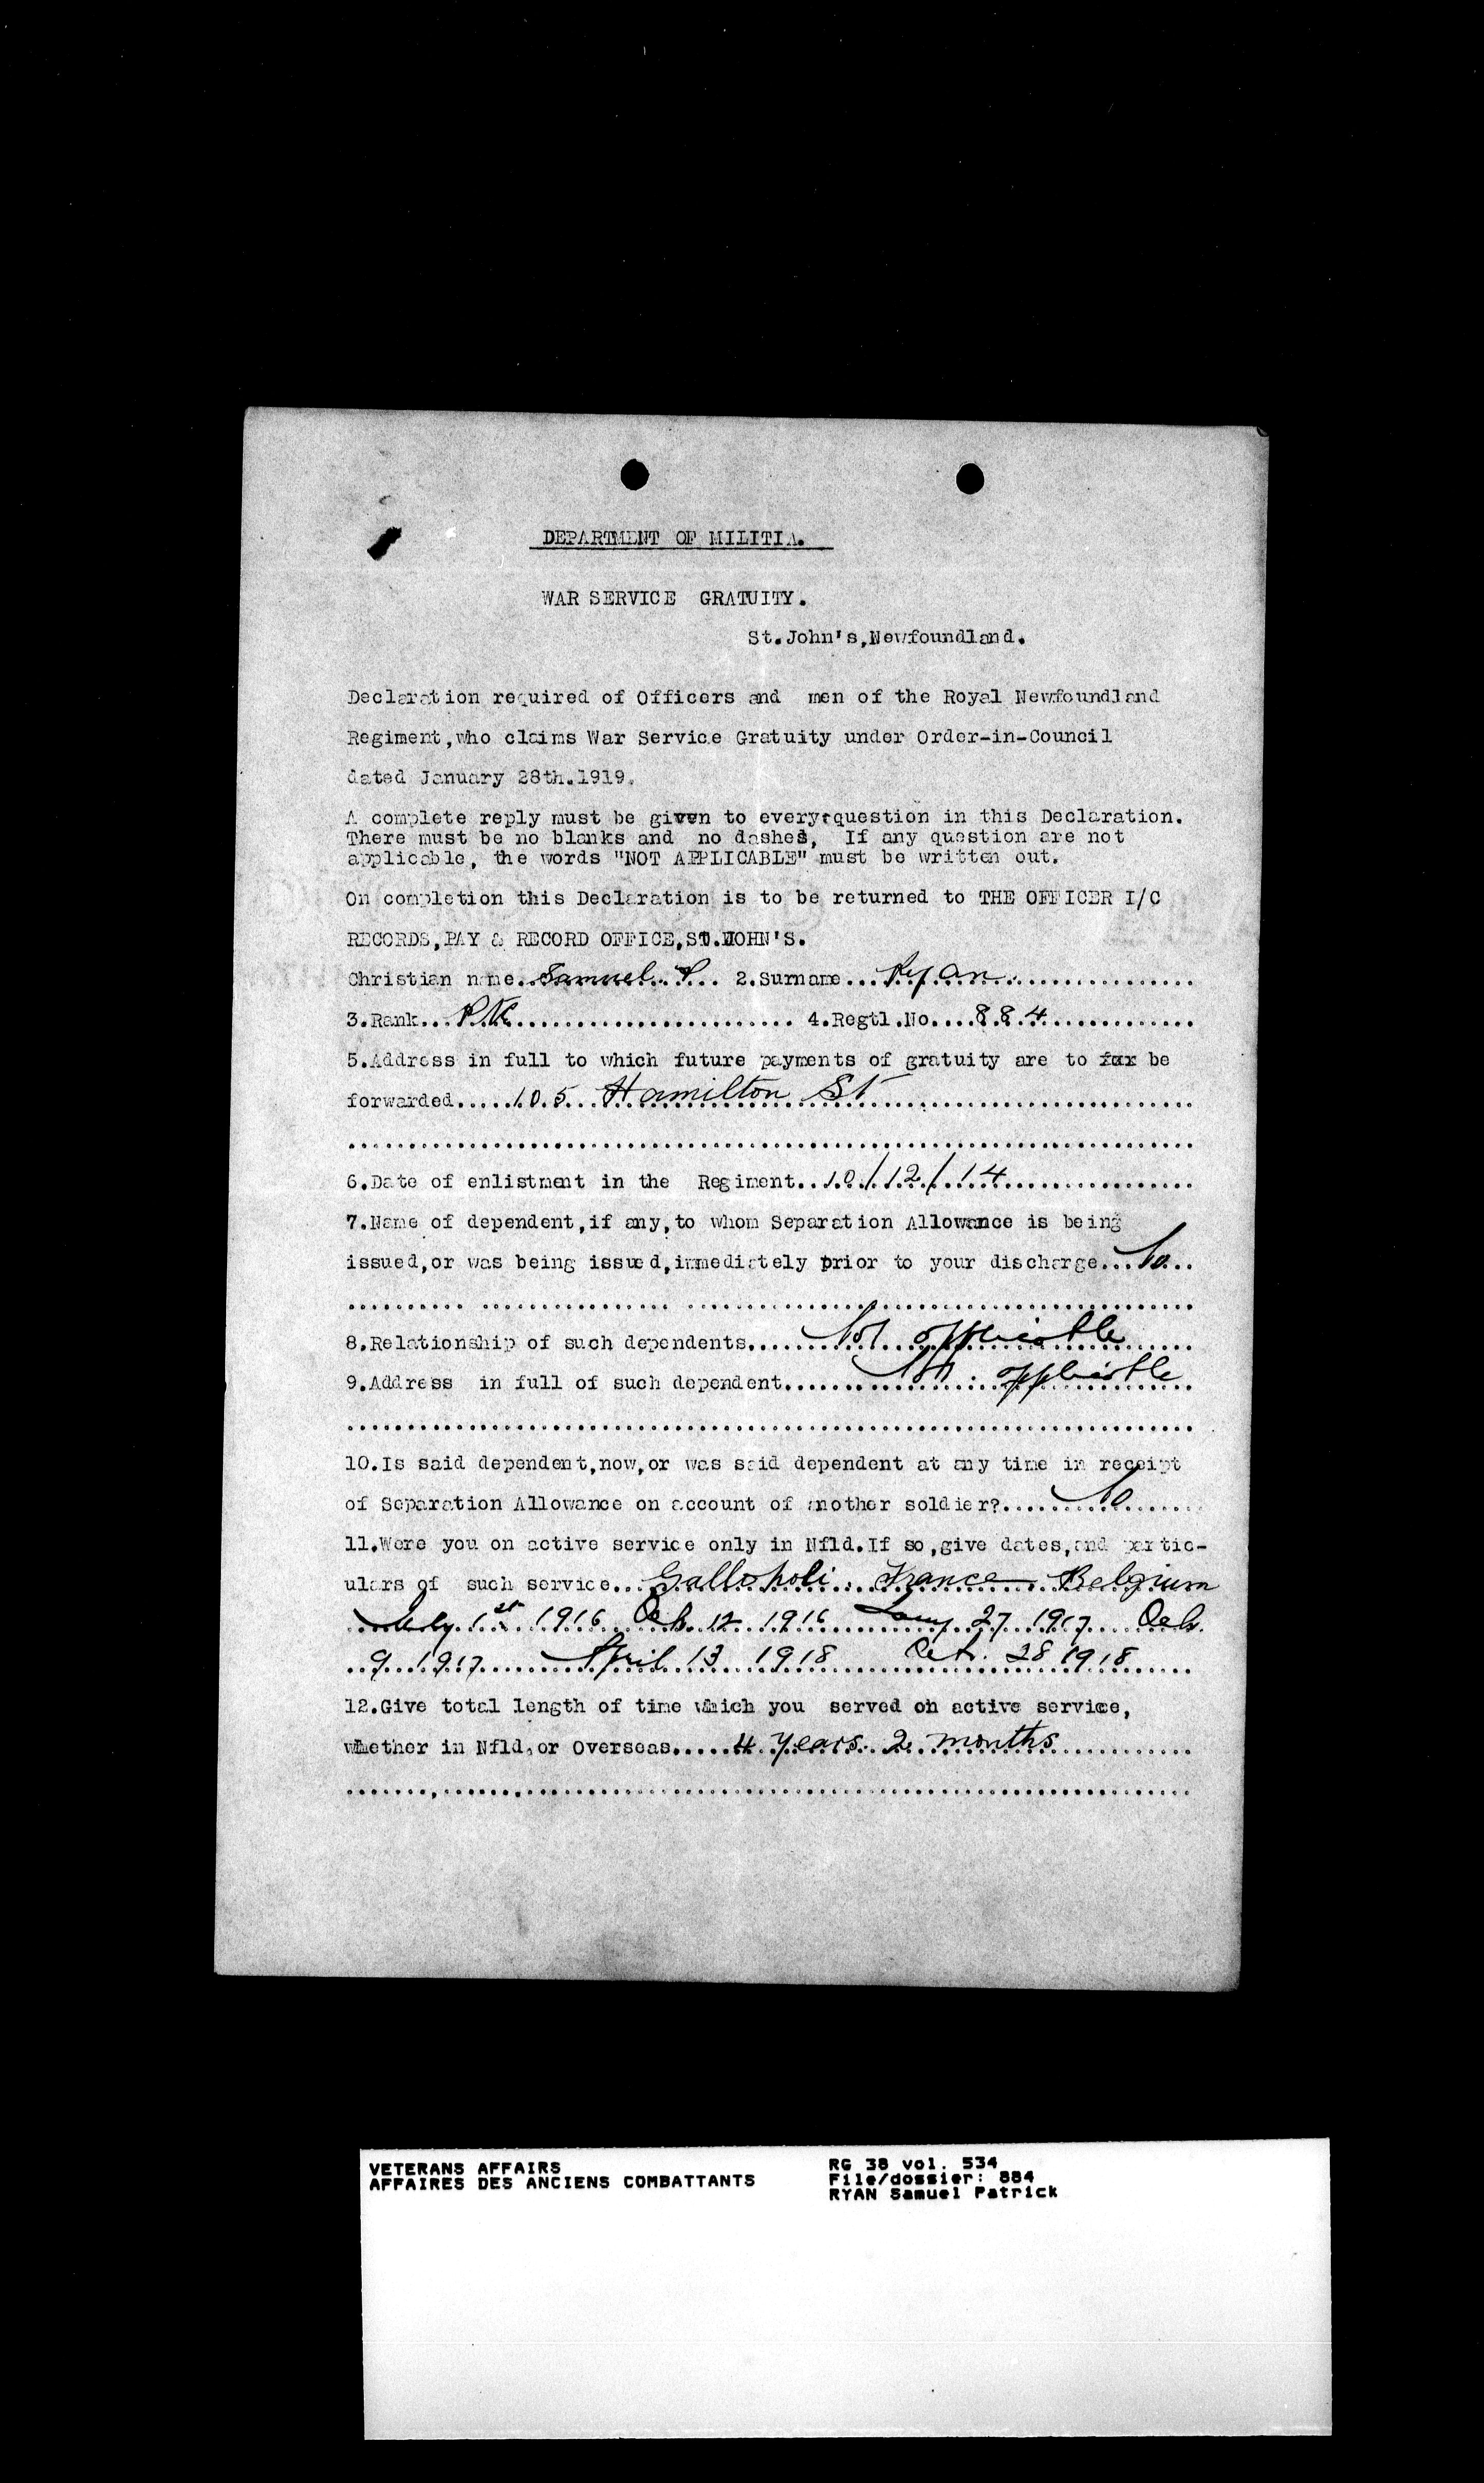 DEPARTMENT OF MILITIA.
WAR SERVICE GRATUITY.
St.John's,Newfoundland.
Declaration required of Officers and men of the Royal Newfoundland
Regiment,who claims War Service Gratuity under Order-in-Council
dated January 28th.1919.
A complete reply must be given to every question in this Declaration.
There must be no blanks and no dashes, If any question are not
applicable, the words "NOT APPLICABLE" must be written out.
On completion this Declaration is to be returned to THE OFFICER I/C
RECORDS,PAY & RECORD OFFICE,ST.JOHN'S.
Christian name..Samuel P... 2.Surname...Ryan...
3.Rank...Pte... 4.Regtl.No....884...
5.Address in full to which future payments of gratuity are to fux be
forwarded.....105 Hamilton St...
6.Date of enlistment in the Regiment...10/12/14...
7.Name of dependent,if any,to whom Separation Allowance is being
issued,or was being issued,immediately prior to your discharge...No...
8.Relationship of such dependents....Not applicable...
9.Address in full of such dependent.....Not applicable...
10.Is said dependent,now,or was said dependent at any time in receipt
of Separation Allowance on account of another soldier?.....No.....
11.Were you on active service only in Nfld.If so,give dates,and partic-
ulars of such service...Gallopoli France Belgium
July 1st 1916 Oct. 12 1916 Jany 27 1917 Oct.
9 1917 April 13 1918 Oct. 28 1918
12.Give total length of time which you served on active service,
whether in Nfld,or Overseas.....4 years 2 months
VETERANS AFFAIRS
AFFAIRES DES ANCIENS COMBATTANTS
RG 38 vol. 534
File/dossier: 884
RYAN Samuel Patrick